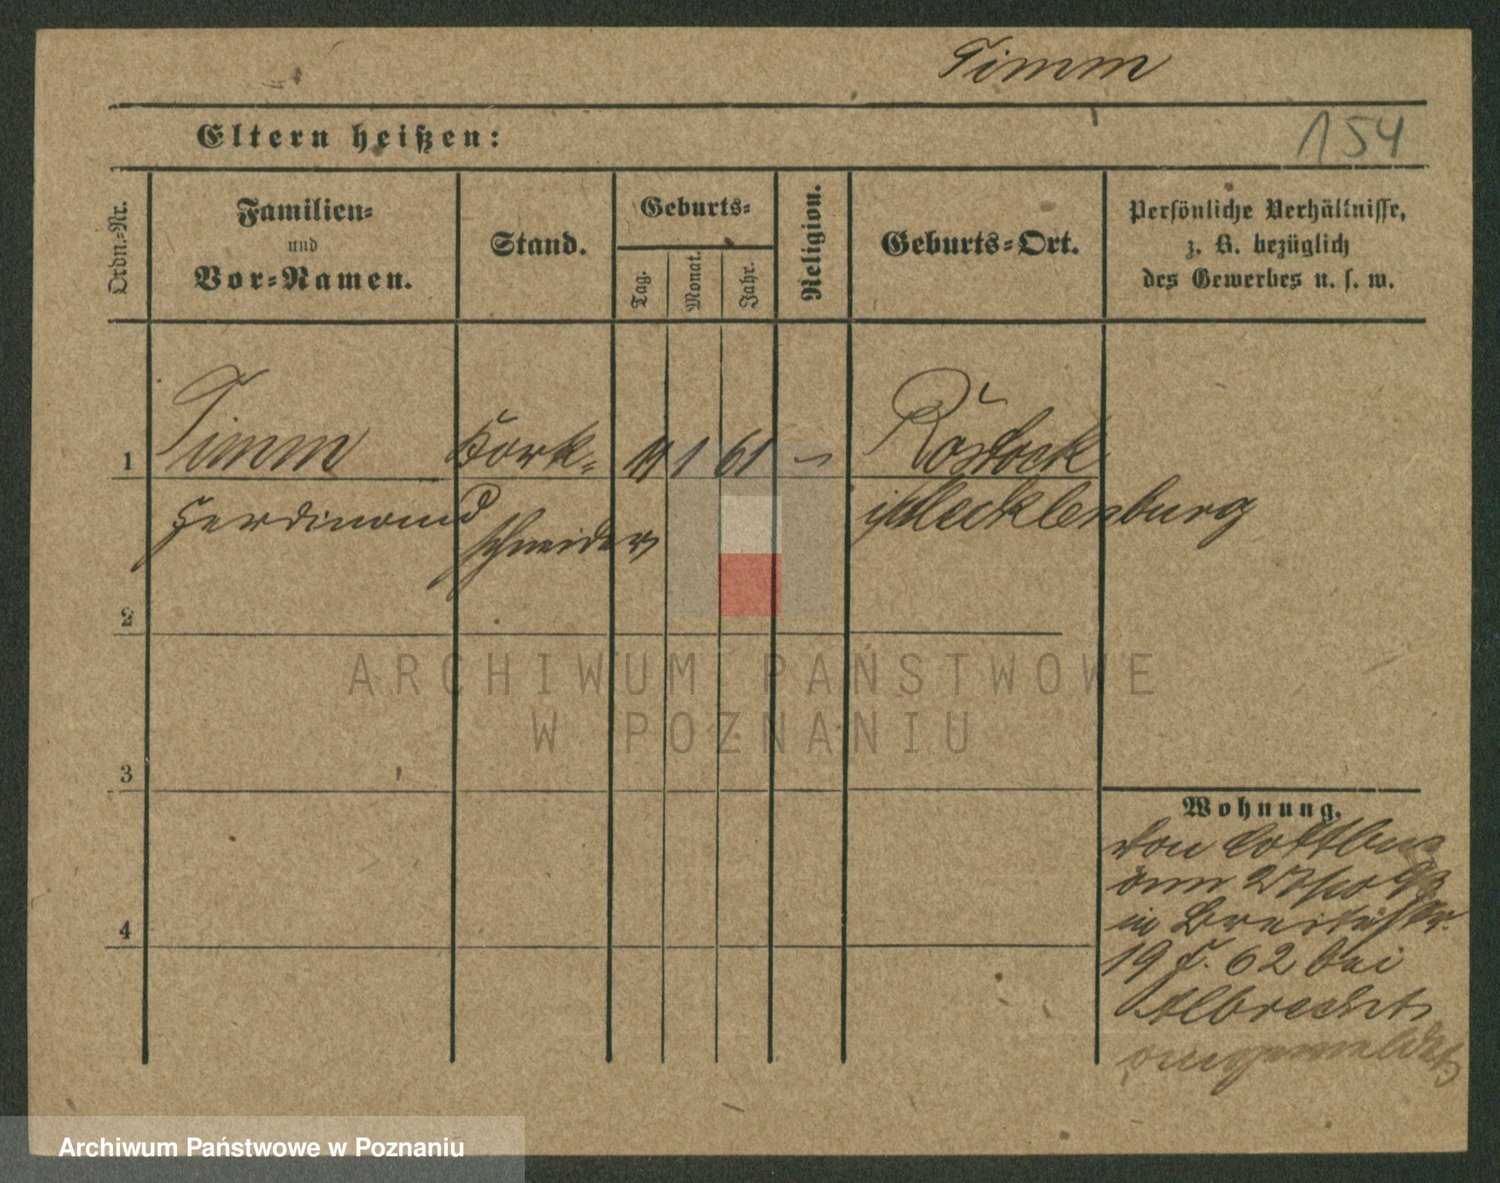 Timm
Eltern heißen:
154
Ordn.-Nr.
Familien-
und
Vor-Namen.
Stand.
Geburts-
Tag.
Monat.
Jahr.
Religion.
Geburts-Ort.
Persönliche Verhältnisse,
z. B. bezüglich
des Gewerbes u. s. w.
1
Timm
Kork-
1 61 –
Rostock
Ferdinand
schneider
i/Mecklenburg
2
ARCHIWUM PAŃSTWOWE
W POZNANIU
3
Wohnung.
von Cottbus
am 27
in Breitestr.
19 b. 62 bei
4
Albrecht
angemeldet
Archiwum Państwowe w Poznaniu